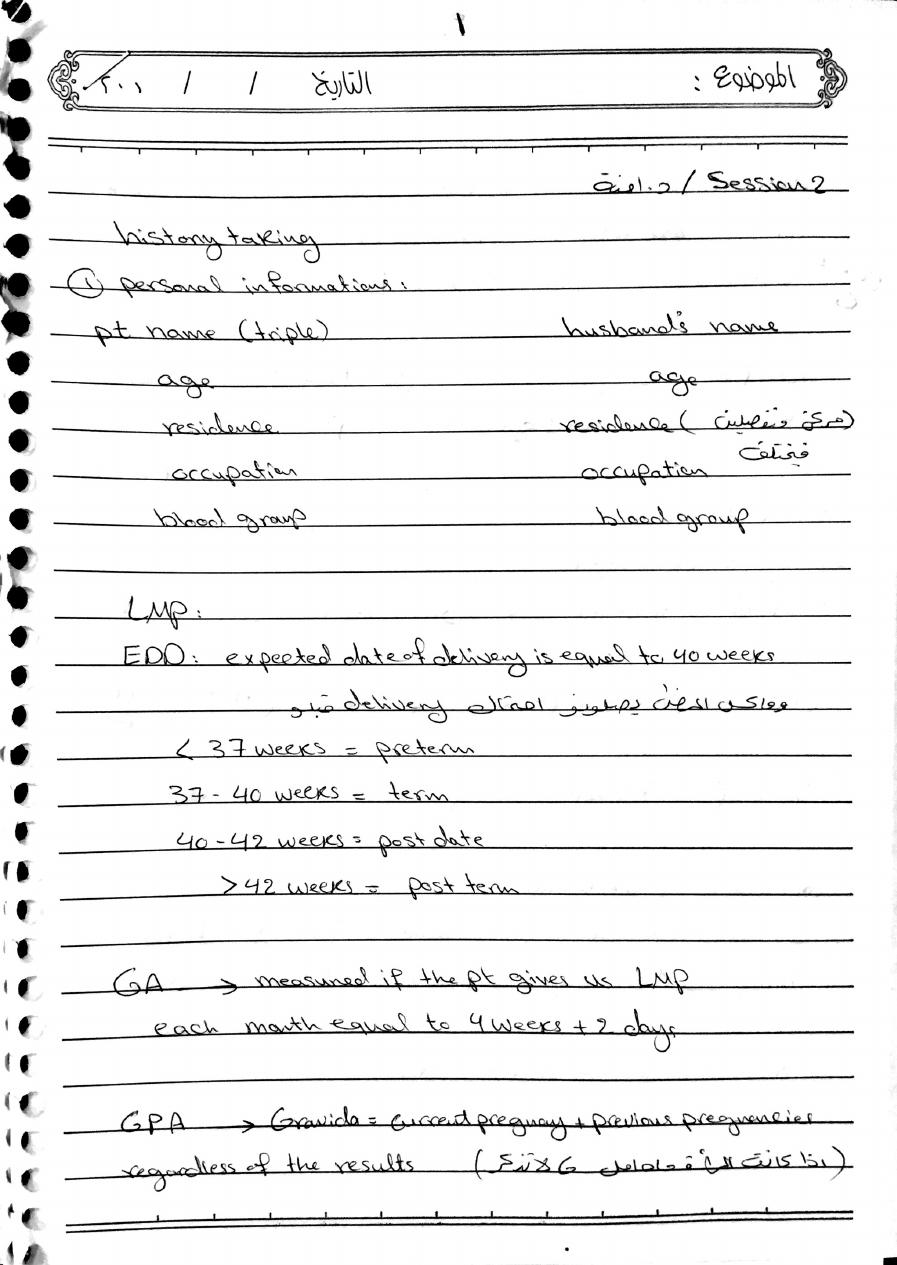 ١
الموضوع : التاريخ / / ٢٠٠١
د. امنة / Session 2
history taking
① personal informations:
pt name (triple) husband's name
age age
residence residence (مركز وتفصيلين
مختلف
occupation occupation
blood group blood group
LMP:
EDD: expected date of delivery is equal to 40 weeks
احتمال delivery قبلو
< 37 weeks = preterm
37 - 40 weeks = term
40 - 42 weeks = post date
> 42 weeks = post term
GA → measured if the pt gives us LMP
each month equal to 4 weeks + 2 days
GPA → Gravida = current pregnacy + previous pregnancies
regardless of the results (إذا كانت حامل لا تذكر)